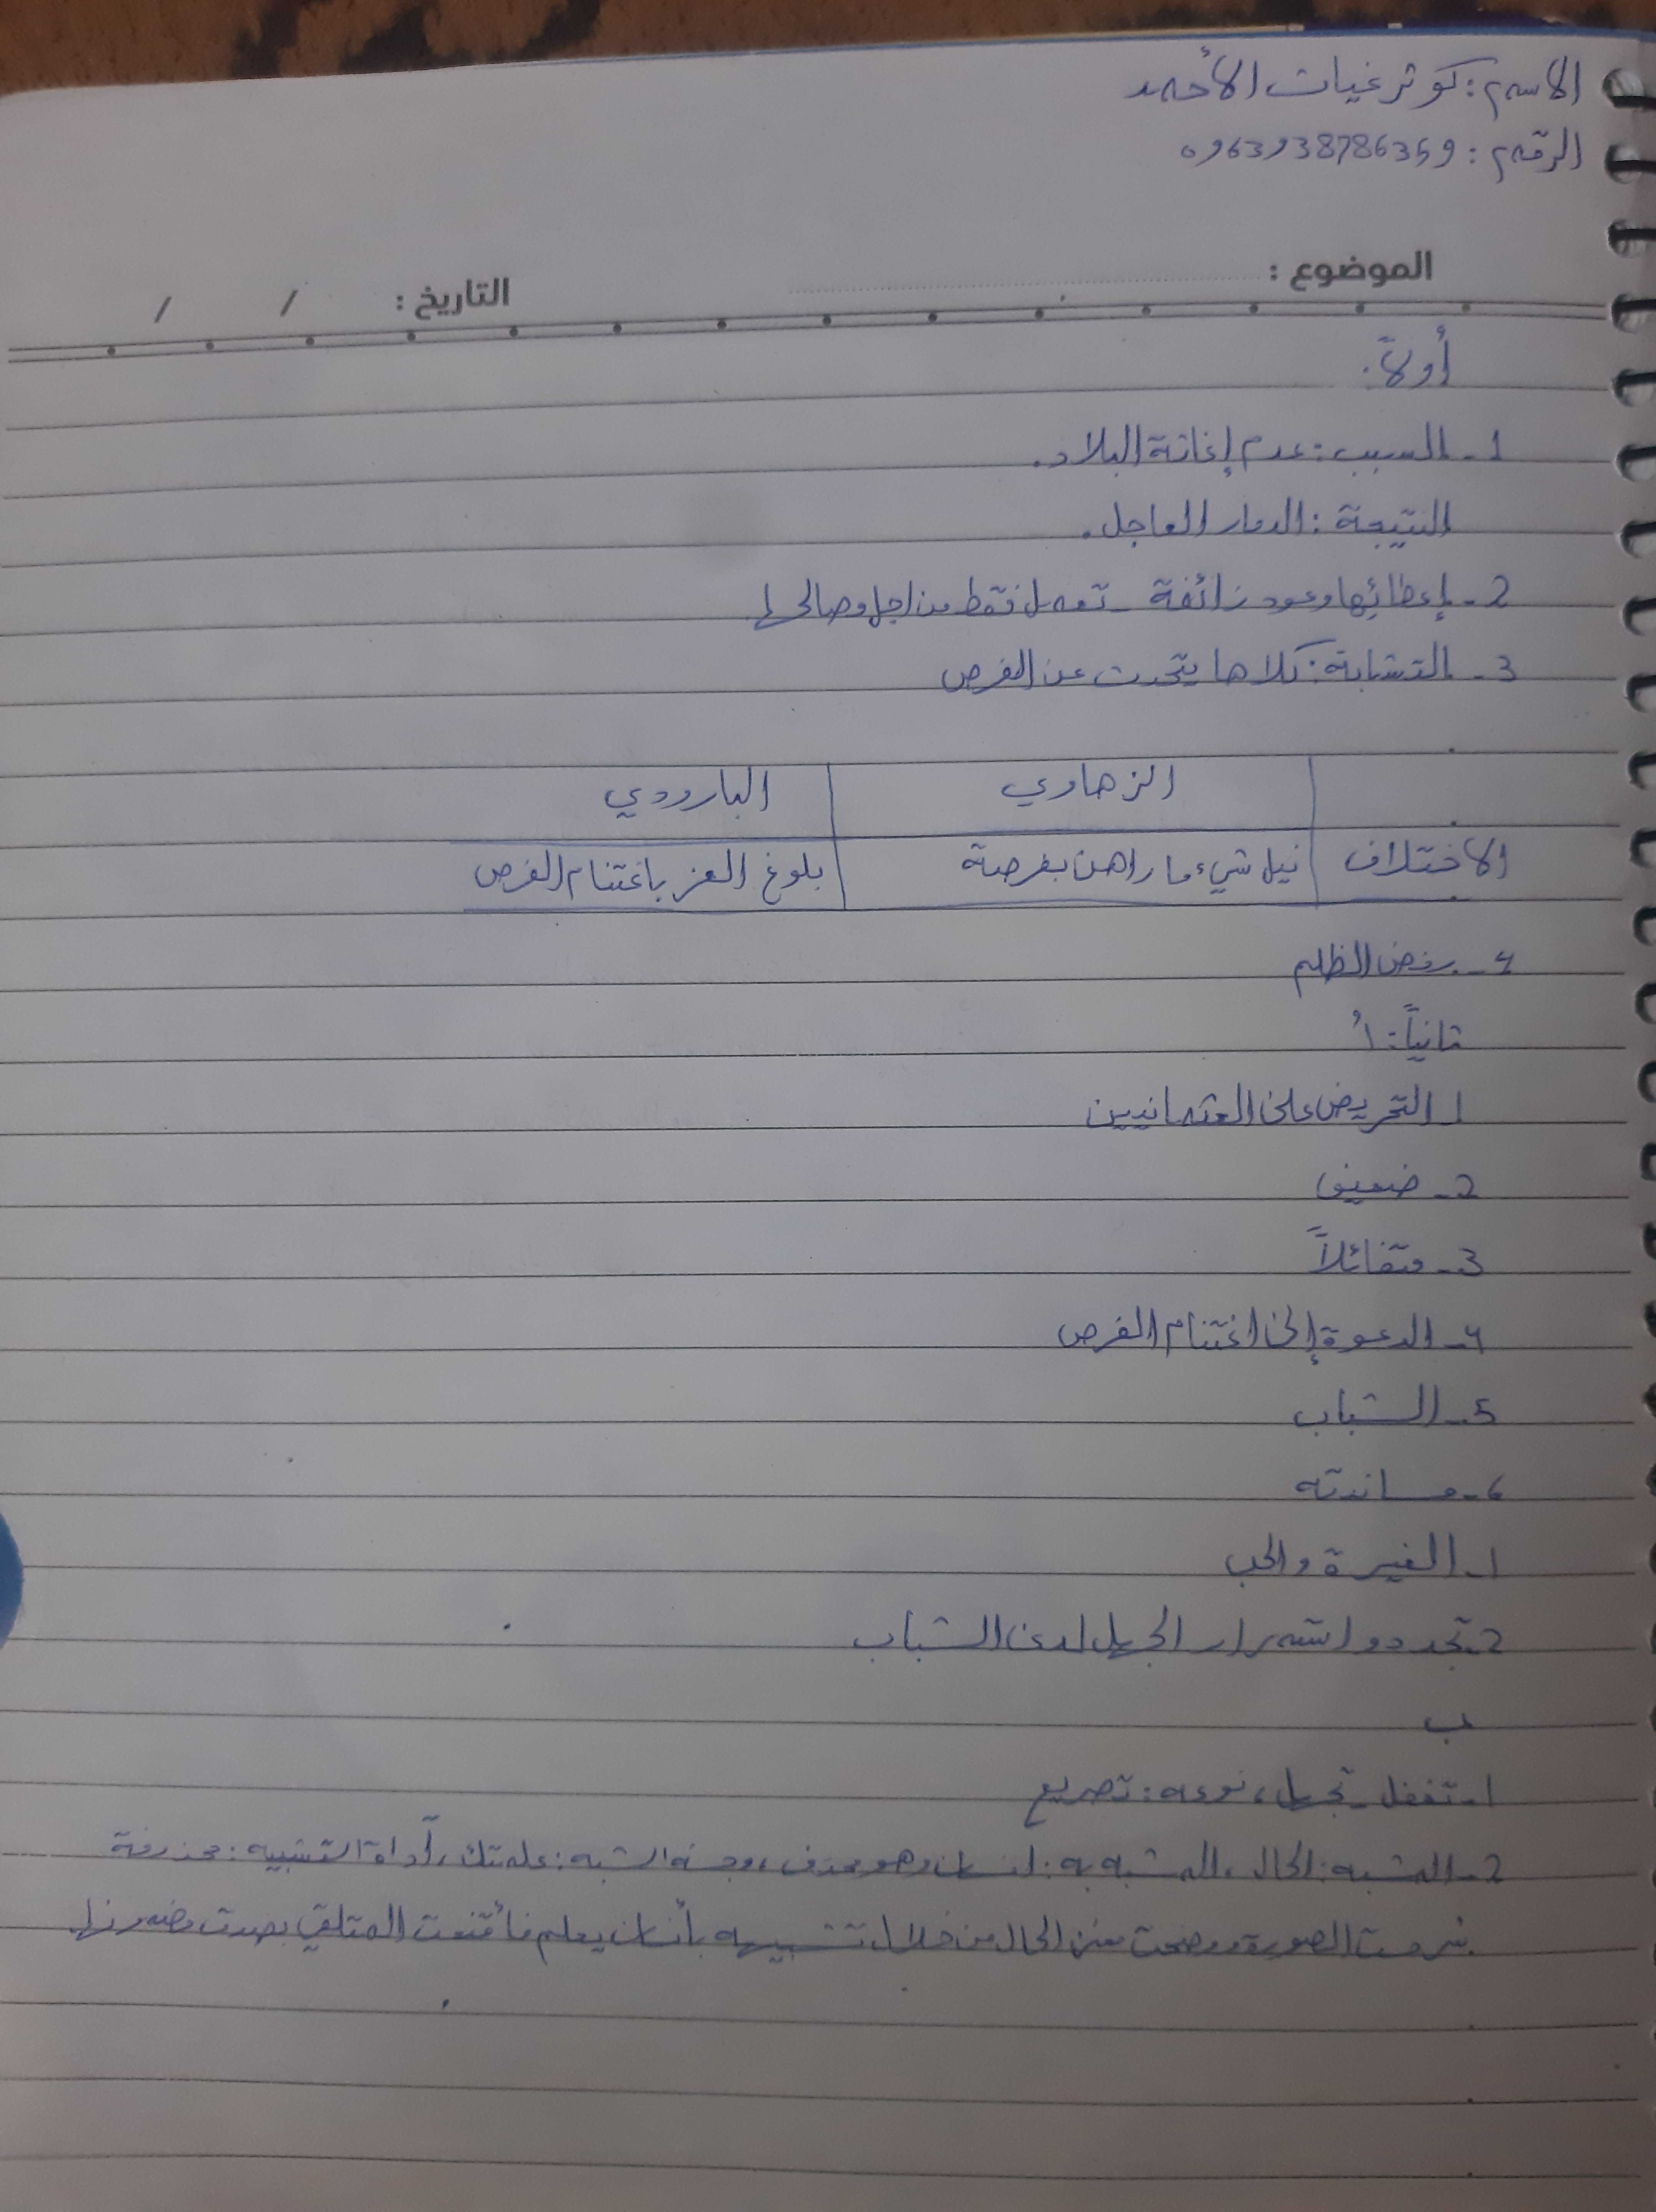 الاسم: كوثر غياث الأحمد
الرقم: 0963938786359
الموضوع :
التاريخ : / /
أولاً:
1- السبب: عدم إغاثة البلاد.
النتيجة: الدمار العاجل.
2- إعطائها وعود زائفة - تعمل فقط من اجل مصالحها
3- التشابة: كلاهما يتحدث عن الفرص
الزهاوي البارودي
الاختلاف نيل شيء ما راهن بفرصة بلوغ العز باغتنام الفرص
4- رفض الظلم
ثانياً: أ
1 التحريض على العثمانيين
2- ضعيف
3- متفائلاً
4- الدعوة إلى اغتنام الفرص
5- الشباب
6- مساندته
1- الغيرة والحب
2- تجدد واستمرار الجهل لدى الشباب
ب
1- تغفل - تجهل، نوعه: تصريع
2- المشبه: الحال، المشبه به: إنسان وهو محذف، وجه الشبه: علمتك، أداة التشبيه: محذوفة
شرحت الصورة ووضحت معنى الحال من خلال تشبيهه بأنسان يعلم فأقنعت المتلقي بصدت مضمونها.